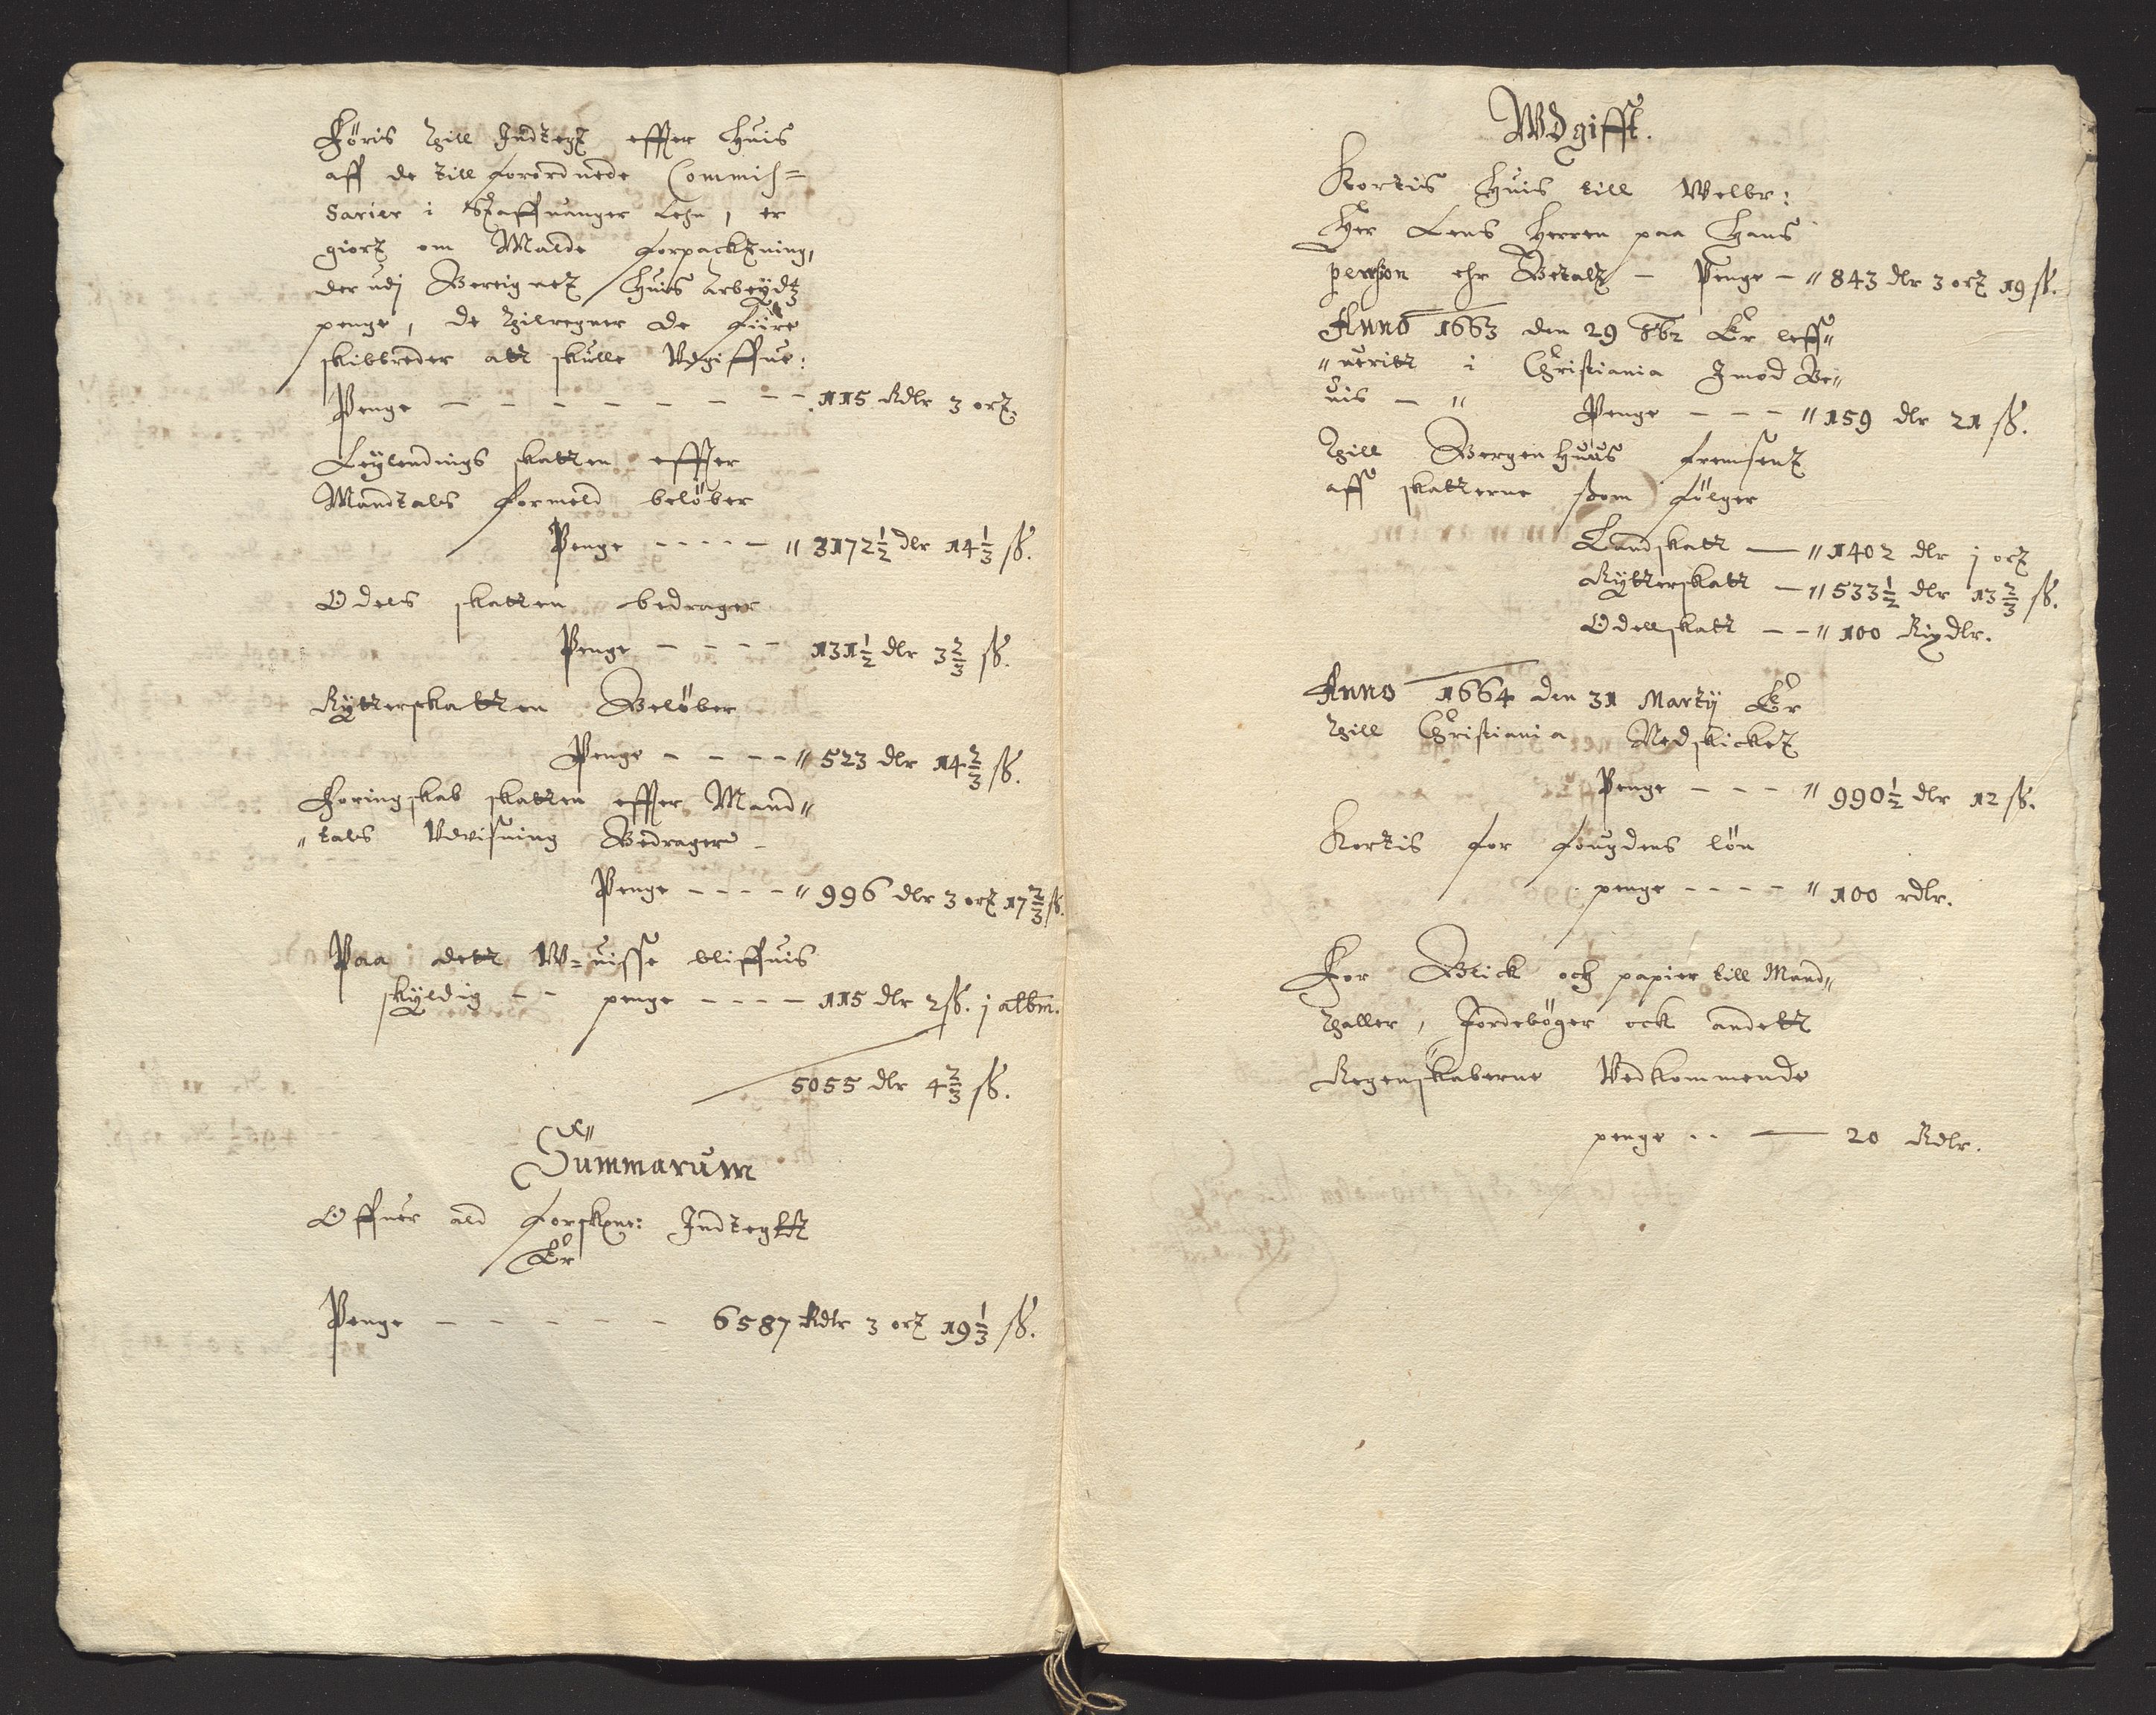 Föris till Indtegt effter huis
aff de till forordnede Commis=
sarier i Staffuanger Lehn, er
giort om Malde forpacktning,
der udj Beregnet huis Arbeydtz
penge, de tilregner de fiire
skibbreder att skulle Udgiffue:
Penge - - - - - - - - 115 Rdlr 3 ort.
Leylendings skatten effter
Mandtals formeld belöber
Penge - - - - - " 3172½ dlr 14⅓ ß.
Odels skatten bedrager
Penge - - - - 131½ dlr 3⅔ ß.
Rytterskatten Belöber
Penge - - - - " 523 dlr 14⅔ ß.
Foringskab skatten effter Mand"
"tals Udvisning Bedrager -
Penge - - - - " 996 dlr 3 ort 17⅔ ß.
Paa dett W=uisse bliffuis
skyldig - - penge - - - - 115 dlr 2 ß. j albm.
5055 dlr 4⅔ ß.
Summarum
Offuer ald forskne: Indtegtt
Er
Penge - - - - - - 6587 Rdlr 3 ort 19⅓ ß.
Wdgifft.
Kortis huis till Welbr:
Her Lens Herren paa Hans
person ehr Betalt - Penge - " 843 dlr 3 ort 19 ß.
Anno 1663 den 29 8b2 Er leff"
"ueritt i Christiania Imod Be"
uis - " Penge - - - " 159 dlr 21 ß.
Till Bergenhuus fremsent
aff skatterne ssom fölger
Landskatt - " 1402 dlr j ort
Rytterskatt - " 533½ dlr 13⅔ ß.
Odellskatt - - " 100 Rixdlr.
Anno 1664 den 31 Martij Er
till Christiania Nedskicket
Penge - - - " 990½ dlr 12 ß.
Kortis for fougdens lön
penge - - - - " 100 rdlr.
For Blick och papier till Mand"
taller, Jordeböger ock andett
Regenskaberne Vedkommende
penge - - — 20 Rdlr.